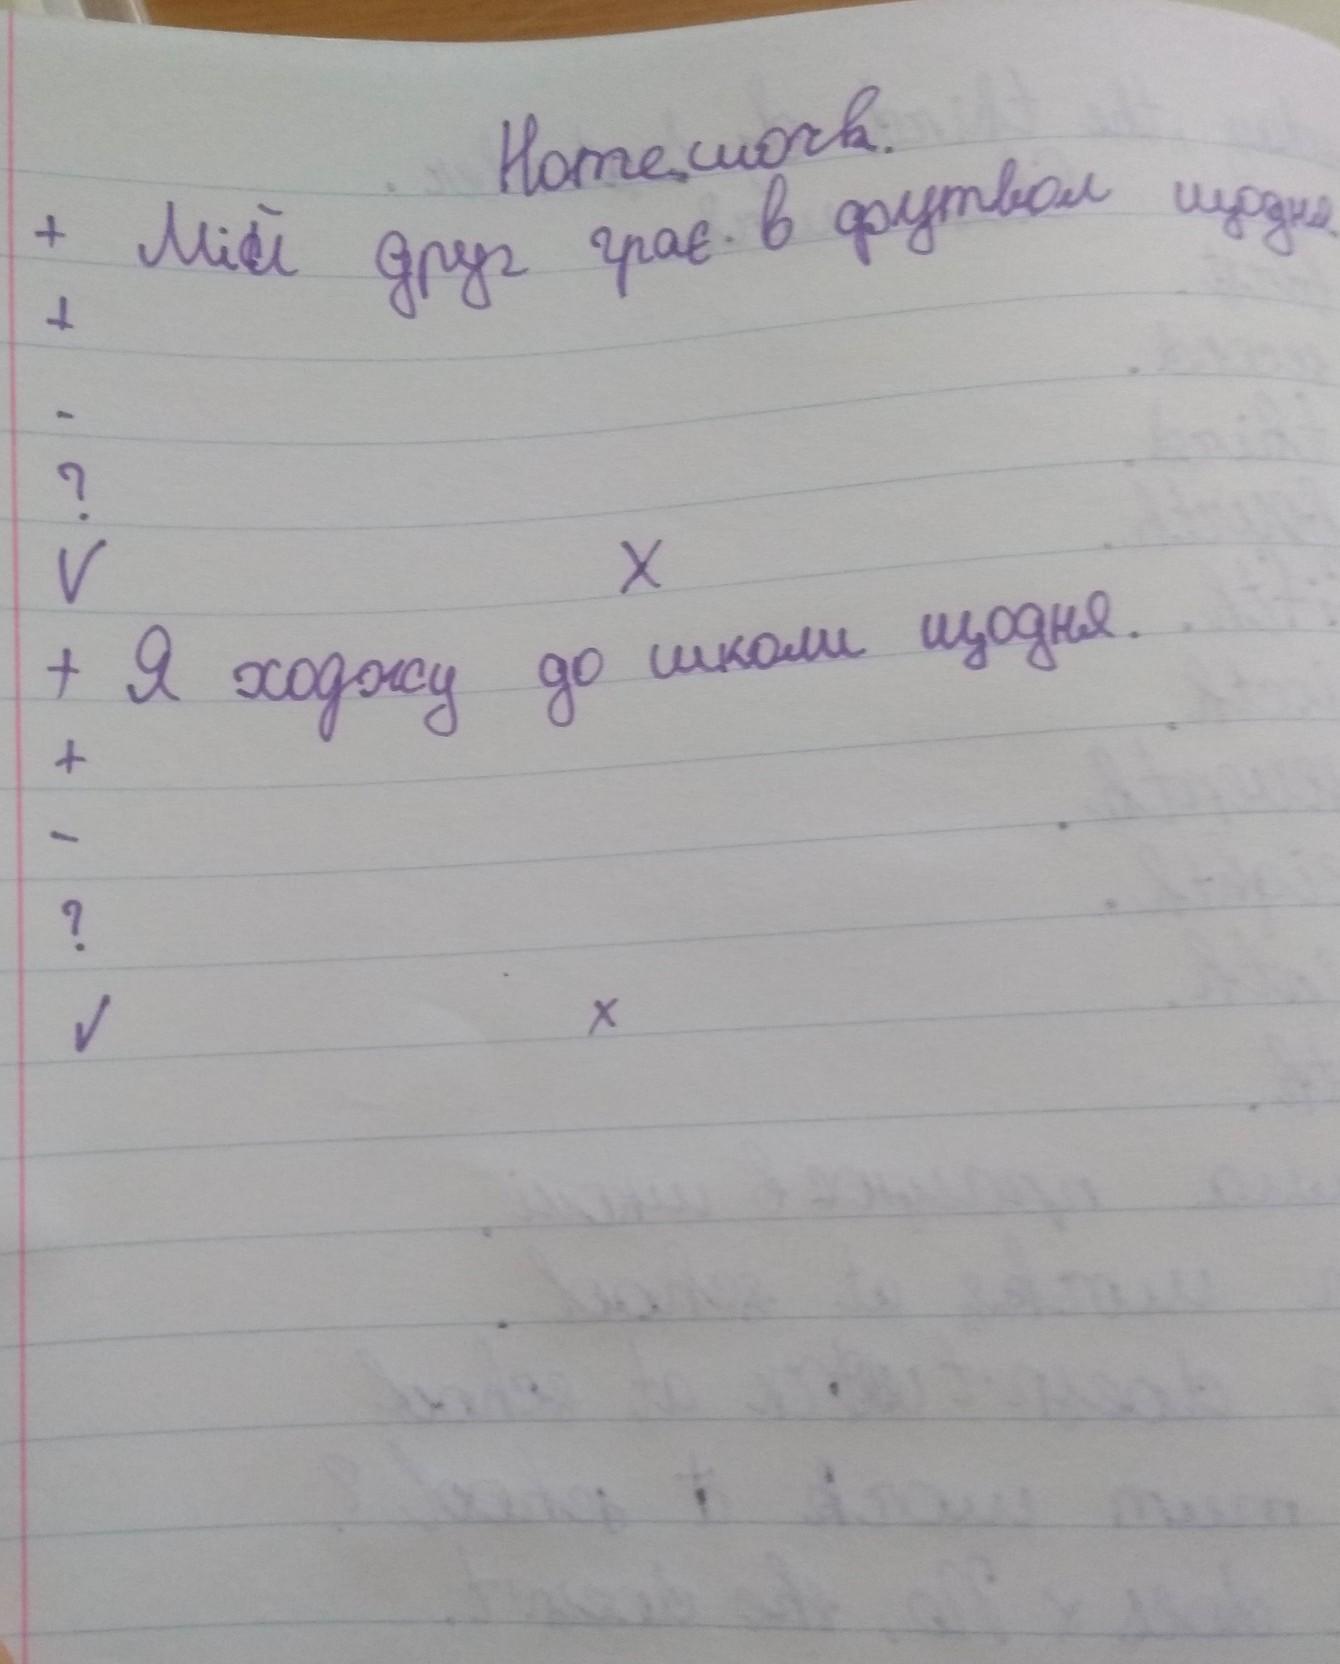 Homework.
+ Мій друг грає в футбол щодня.
+
-
?
V X
+ Я ходжу до школи щодня.
+
-
?
V x